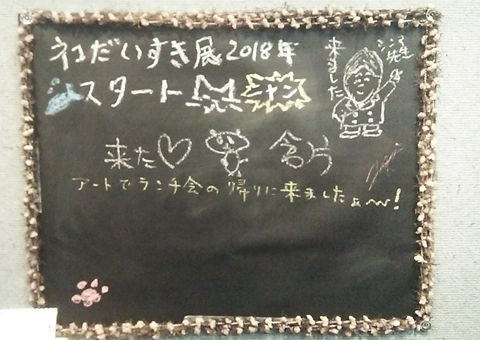 ネコだいすき展2018年
スタート
ニャン
来ました
来た♡
アートでランチ会の帰りに来ましたぁ〜!